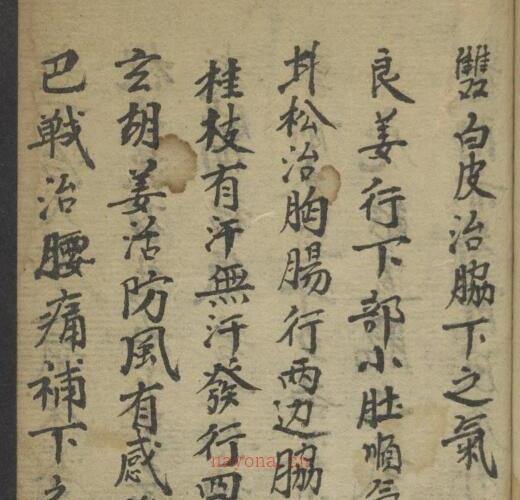 雙白皮治脇下之氣
良姜行下部小肚順氣
甘松治胸腸行两边腸
桂枝有汗無汗發行四
玄胡姜活防風有感
巴戦治腰痛補下之